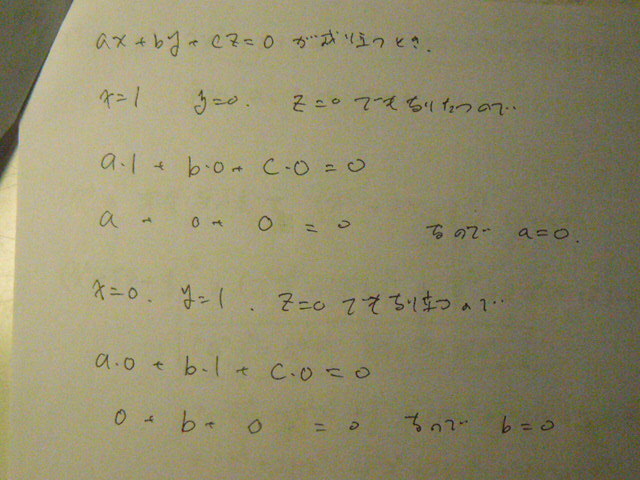 ax+by+cz=0 が成り立つとき.
x=1 y=0. z=0 でもなりたつので..
a·1 + b·0+ c·0 = 0
a + 0+ 0 = 0 なので a=0.
x=0. y=1. z=0 でもなり立つので..
a·0 + b·1 + c·0 = 0
0 + b + 0 = 0 なので b=0